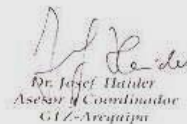 Dr. Josef Haider
Asesor y Coordinador
GTZ-Arequipa